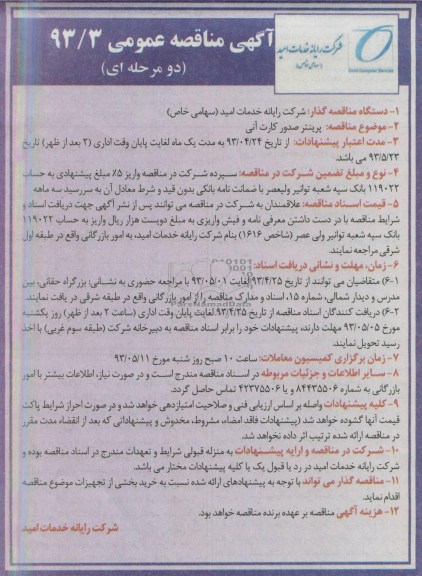 شرکت رایانه خدمات امید
(سهامی خاص)
Omid Computer Services
آگهی مناقصه عمومی ۹۳/۳
(دو مرحله ای)
۱- دستگاه مناقصه گذار: شرکت رایانه خدمات امید (سهامی خاص)
۲- موضوع مناقصه: پرینتر صدور کارت آنی
۳- مدت اعتبار پیشنهادات: از تاریخ ۹۳/۰۴/۲۴ به مدت یک ماه لغایت پایان وقت اداری (۲ بعد از ظهر) تاریخ
۹۳/۵/۲۳ می باشد.
۴- نوع و مبلغ تضمین شرکت در مناقصه: سپرده شرکت در مناقصه واریز ۵٪ مبلغ پیشنهادی به حساب
۱۱۹۰۲۲ بانک سپه شعبه توانیر ولیعصر یا ضمانت نامه بانکی بدون قید و شرط معادل آن به سررسید سه ماهه
۵- قیمت اسناد مناقصه: علاقمندان به شرکت در مناقصه می توانند پس از نشر آگهی جهت دریافت اسناد و
شرایط مناقصه با در دست داشتن معرفی نامه و فیش واریزی به مبلغ دویست هزار ریال واریز به حساب ۱۱۹۰۲۲
بانک سپه شعبه توانیر ولی عصر (شاخص ۱۶۱۶) بنام شرکت رایانه خدمات امید، به امور بازرگانی واقع در طبقه اول
شرقی مراجعه نمایند.
۶- زمان، مهلت و نشانی دریافت اسناد:
۶-۱) متقاضیان می توانند از تاریخ ۹۳/۴/۲۵ لغایت ۹۳/۰۵/۰۱ با مراجعه حضوری به نشانی: بزرگراه حقانی، بین
مدرس و دیدار شمالی، شماره ۱۵، اسناد و مدارک مناقصه را از امور بازرگانی واقع در طبقه شرقی در یافت نمایند.
۶-۲) دریافت کنندگان اسناد مناقصه از تاریخ ۹۳/۴/۲۵ لغایت پایان وقت اداری (ساعت ۲ بعد از ظهر) روز یکشنبه
مورخ ۹۳/۰۵/۰۵ مهلت دارند، پیشنهادات خود را برابر اسناد مناقصه به دبیرخانه شرکت (طبقه سوم غربی) با اخذ
رسید تحویل نمایند.
۷- زمان برگزاری کمیسیون معاملات: ساعت ۱۰ صبح روز شنبه مورخ ۹۳/۰۵/۱۱
۸- سایر اطلاعات و جزئیات مربوطه در اسناد مناقصه مندرج است و در صورت نیاز، اطلاعات بیشتر با امور
بازرگانی به شماره ۸۴۴۳۵۵۰۶ و یا ۴۲۳۷۵۵۰۶ تماس حاصل گردد.
۹- کلیه پیشنهادات واصله بر اساس ارزیابی فنی و صلاحیت امتیازدهی خواهد شد و در صورت احراز شرایط پاکت
قیمت آنها گشوده خواهد شد (پیشنهادات فاقد امضاء، مشروط، مخدوش و پیشنهاداتی که بعد از انقضاء مدت مقرر
در مناقصه ارائه شده ترتیب اثر داده نخواهد شد.
۱۰- شرکت در مناقصه و ارایه پیشنهادات به منزله قبولی شرایط و تعهدات مندرج در اسناد مناقصه بوده و
شرکت رایانه خدمات امید در رد یا قبول یک یا کلیه پیشنهادات مختار می باشد.
۱۱- مناقصه گذار می تواند با توجه به پیشنهادهای ارائه شده نسبت به خرید بخشی از تجهیزات موضوع مناقصه
اقدام نماید.
۱۲- هزینه آگهی مناقصه بر عهده برنده مناقصه خواهد بود.
شرکت رایانه خدمات امید